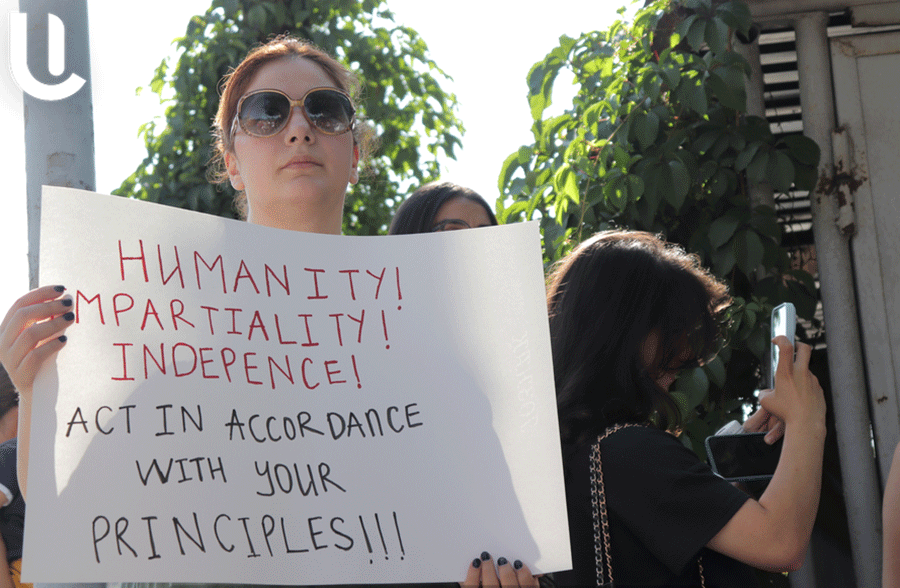 U
HUMANITY!
IMPARTIALITY!
INDEPENCE!
ACT IN ACCORDANCE
WITH YOUR
PRINCIPLES!!!